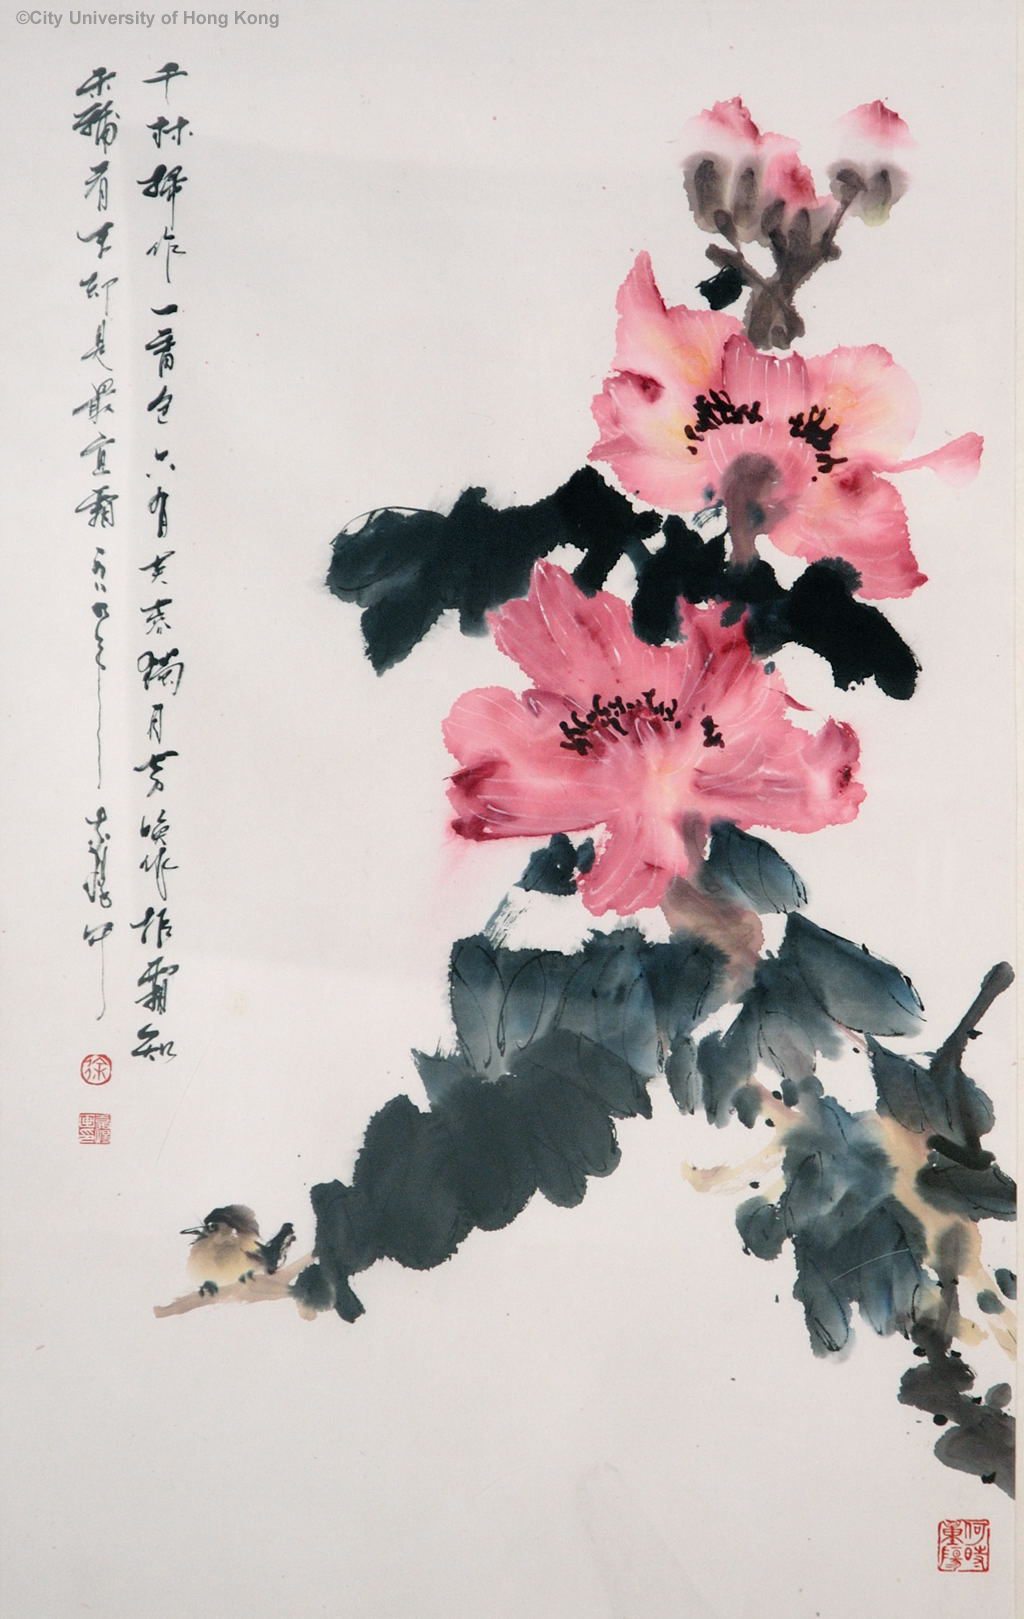 ©City University of Hong Kong
千林掃作一番色只有芙蓉獨自芳喚作拒霜知
未稱看來却是最宜霜一九八九年
徐
何時